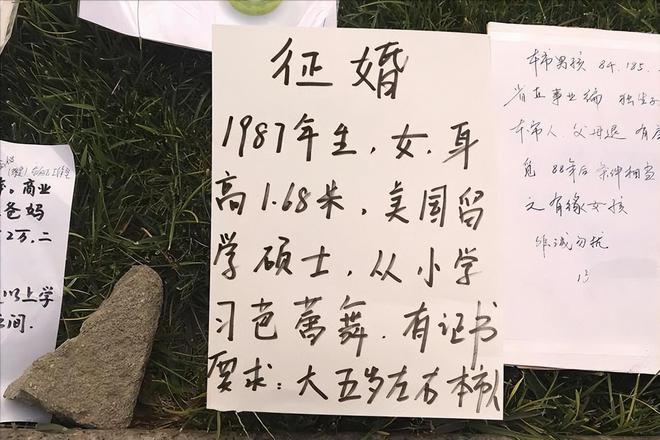 商业
爸妈
2万.二
以上学
征婚
1987年生,女,身
高1.68米,美国留
学硕士,从小学
习芭蕾舞.有证书
要求:大五岁左右本市人
本市男孩 84.185.
省直事业编 独生子
本市人.父母退 有房
觅 88年后 条件相当
之有缘女孩
非诚勿扰
13